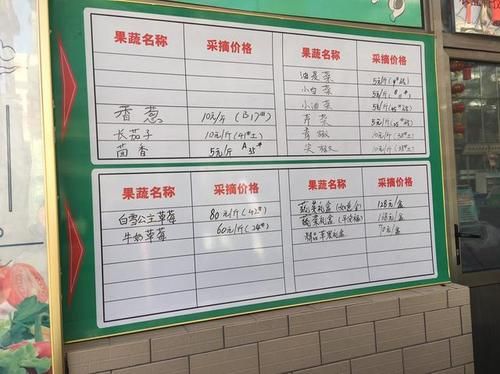 果蔬名称 采摘价格
香葱 10元/斤 (B17#)
长茄子 10元/斤 (41#土)
茴香 5元/斤 A35#
果蔬名称 采摘价格
油麦菜 5元/斤
小白菜 5元/斤
小油菜 5元/斤
芹菜 5元/斤
青椒 10元/斤 (38#土)
尖椒 10元/斤 (38#土)
果蔬名称 采摘价格
白雪公主草莓 80元/斤 (42#)
牛奶草莓 60元/斤 (24#)
果蔬名称 采摘价格
蔬菜礼盒 128元/盒
蔬菜礼盒 元/盒
精品苹果礼盒 70元/盒